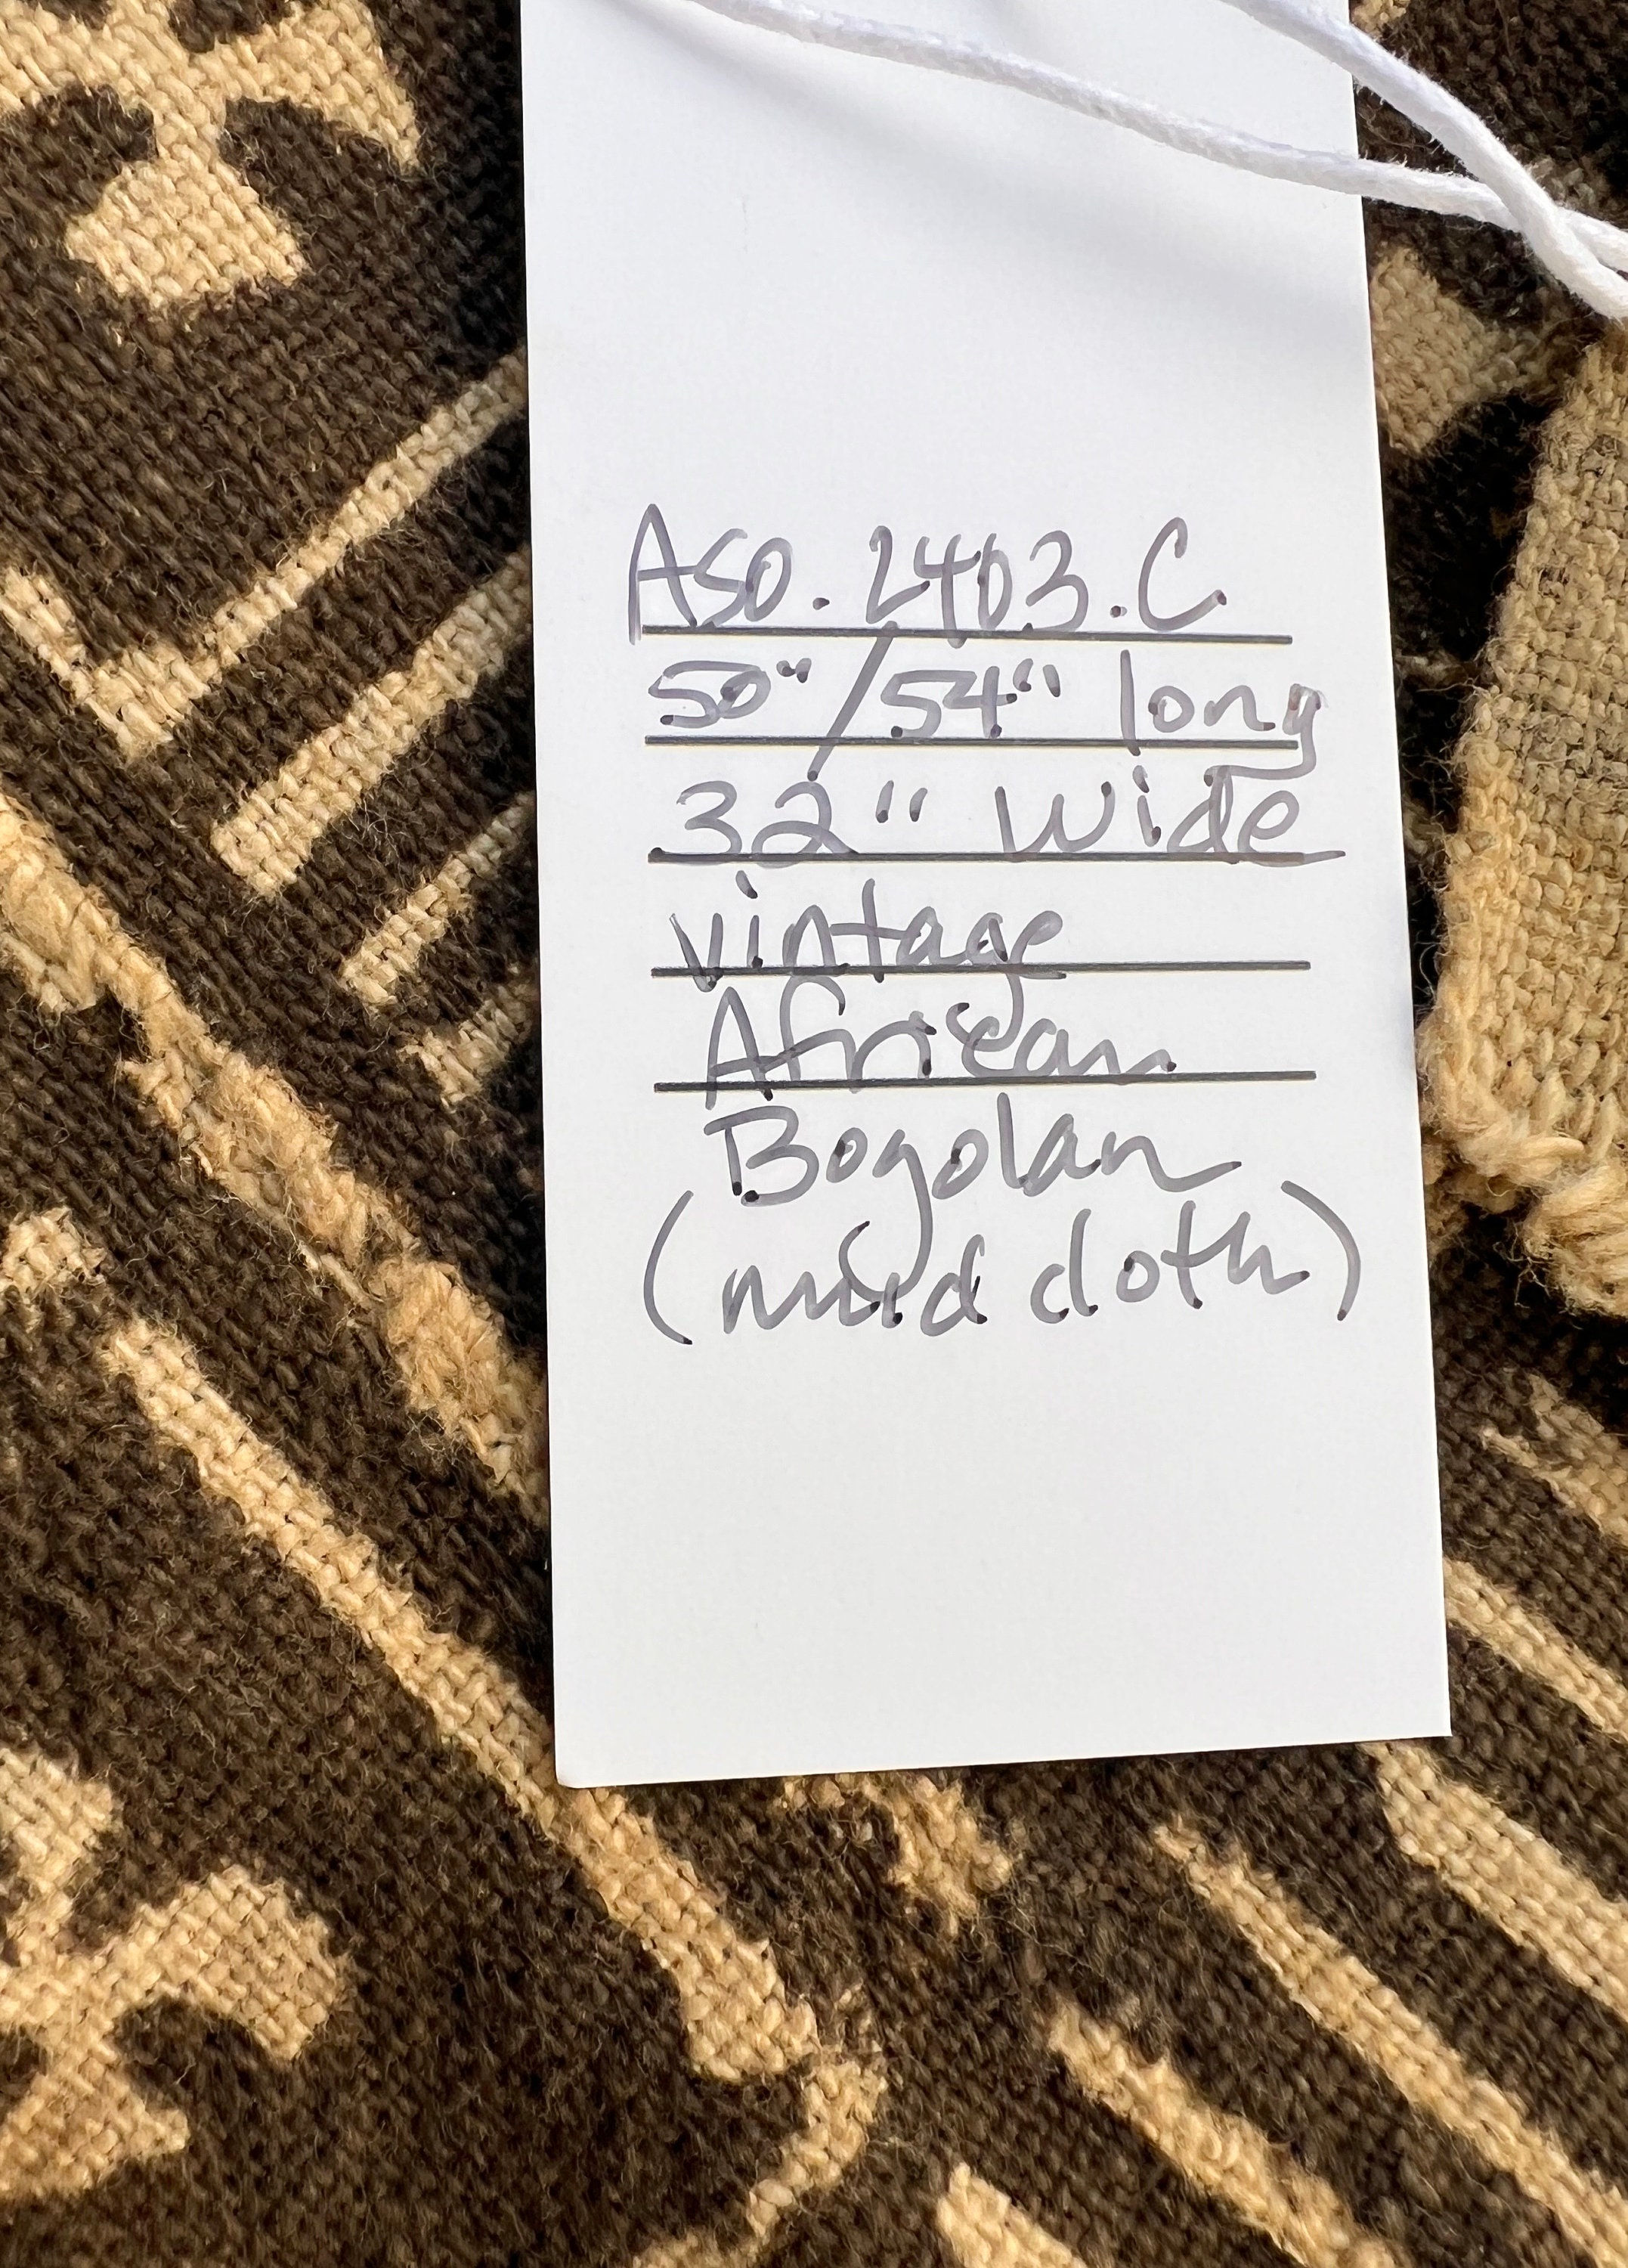 Aso.2403.C
50"/54" long
32" wide
vintage
African
Bogolan
(mud cloth)